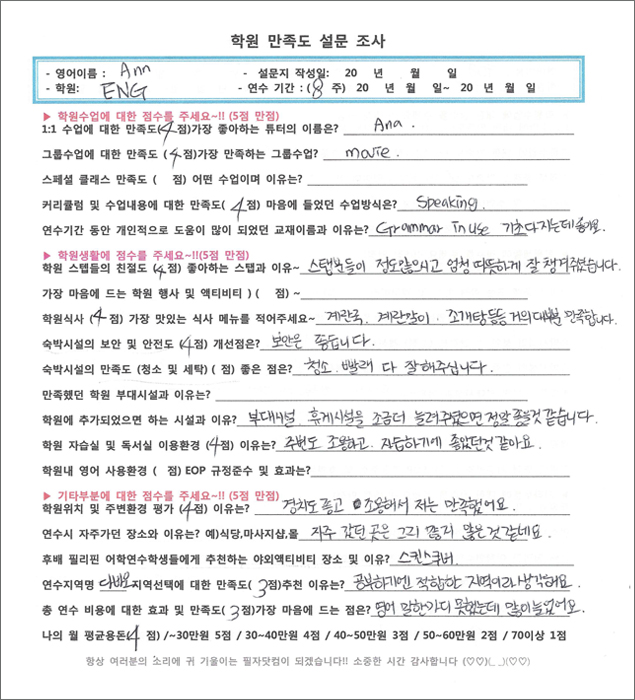 학원 만족도 설문 조사
- 영어이름 : Ann - 설문지 작성일: 20 년 월 일
- 학원: ENG - 연수 기간 : (8 주) 20 년 월 일~ 20 년 월 일
▶ 학원수업에 대한 점수를 주세요~!! (5점 만점)
1:1 수업에 대한 만족도(4점)가장 좋아하는 튜터의 이름은? Ana.
그룹수업에 대한 만족도 (4점)가장 만족하는 그룹수업? movie.
스페셜 클래스 만족도 ( 점) 어떤 수업이며 이유는?
커리큘럼 및 수업내용에 대한 만족도( 4점) 마음에 들었던 수업방식은? Speaking.
연수기간 동안 개인적으로 도움이 많이 되었던 교재이름과 이유는? Grammar in use 기초다지는데 좋아요.
▶ 학원생활에 점수를 주세요~!!(5점 만점)
학원 스텝들의 친절도 (4점) 좋아하는 스탭과 이유~ 스탭분들이 정도많으시고 엄청 따뜻하게 잘 챙겨주셨습니다.
가장 마음에 드는 학원 행사 및 액티비티 ) ( 점) ~
학원식사 (4점) 가장 맛있는 식사 메뉴를 적어주세요~ 계란국, 계란말이, 조개탕등등 거의 대부분 만족합니다.
숙박시설의 보안 및 안전도 (4점) 개선점은? 보안은 좋습니다.
숙박시설의 만족도 (청소 및 세탁) ( 점) 좋은 점은? 청소, 빨래 다 잘해주십니다.
만족했던 학원 부대시설과 이유는?
학원에 추가되었으면 하는 시설과 이유? 부대시설, 휴게시설을 조금더 늘려주셨으면 정말 좋을것 같습니다.
학원 자습실 및 독서실 이용환경 (4점) 이유는? 주변도 조용하고, 자습하기에 좋았던것 같아요.
학원내 영어 사용환경 ( 점) EOP 규정준수 및 효과는?
▶ 기타부분에 대한 점수를 주세요~!! (5점 만점)
학원위치 및 주변환경 평가 (4점) 이유는? 경치도좋고 조용해서 저는 만족했어요.
연수시 자주가던 장소와 이유는? 예)식당,마사지샵,몰 자주 갔던 곳은 그리 많지 않은것 같네요.
후배 필리핀 어학연수학생들에게 추천하는 야외액티비티 장소 및 이유? 스킨스쿠버.
연수지역명 다바오 지역선택에 대한 만족도( 3점)추천 이유는? 공부하기엔 적합한 지역이라 생각해요.
총 연수 비용에 대한 효과 및 만족도(3점)가장 마음에 드는 점은? 영어 말한마디 못했는데 많이늘었어요.
나의 월 평균용돈(4 점) /~30만원 5점 / 30~40만원 4점 / 40~50만원 3점 / 50~60만원 2점 / 70이상 1점
항상 여러분의 소리에 귀 기울이는 필자닷컴이 되겠습니다!! 소중한 시간 감사합니다 (♡♡)(_ _)(♡♡)